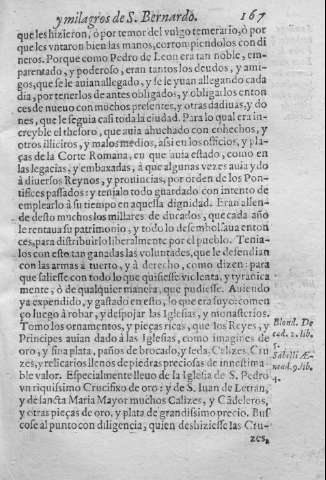 y milagros de S. Bernardo. 167
que les hizieron, ò por temor del vulgo temerario, ò por
que les vntaron bien las manos, corrompiendolos con di
neros. Porque como Pedro de Leon era tan noble, em-
parentado, y poderoso, eran tantos los deudos, y ami-
gos, que se le auian allegado, y se le yuan allegando cada
dia, por tenerlos de antes obligado, y obligarlos enton
ces de nueuo con muchos presentes, y otras dadiuas, y do
nes, que le seguia casi toda la ciudad. Para lo qual era in-
creyble el thesoro, que auia ahuchado con cohechos, y
otros illicitos, y malos medios, assi en los officios, y pla-
ças de la Corte Romana, en que auia estado, como en
las legacias, y embaxadas, à que algunas vezes auia ydo
à diuersos Reynos, y prouincias, por orden de los Pon-
tifices passados: y tenialo todo guardado con intento de
emplearlo à su tiempo en aquella dignidad. Eran allen-
de desto muchos los millares de ducados, que cada año
le rentaua su patrimonio, y todo lo desembolsaua enton
ces, para distribuirlo liberalmente por el pueblo. Tenia-
los con esto tan ganadas las voluntades, que le defendian
con las armas à tuerto, y à derecho, como dizen: para
que saliesse con todo lo que quisiesse violenta, y tyranica
mente, ò de qualquier manera, que pudiesse. Auiendo
ya expendido, y gastado en esto, lo que era suyo: començ
ço luego à robar, y despojar las Iglesias, y monasterios.
Tomo los ornamentos, y pieças ricas, que los Reyes, y
Principes auian dado à las Iglesias, como imagines de
oro, y fina plata, paños de brocado, y seda, Calizes, Cru
zes, y relicarios llenos de piedras preciosas de inestima
ble valor. Especialmente lleuo de la Iglesia de S. Pedro
vn riquissimo Crucifixo de oro: y de S. Iuan de Letran,
y de sancta Maria Mayor muchos Calizes, y Cãdeleros,
y otras pieças de oro, y plata de grandissimo precio. Bus
cose al punto con diligencia, quien deshiziesse las Cru-
zes,
Blond. De
cad. 2. lib.
5.
Sabelli Æ-
nead. 9. lib.
4.